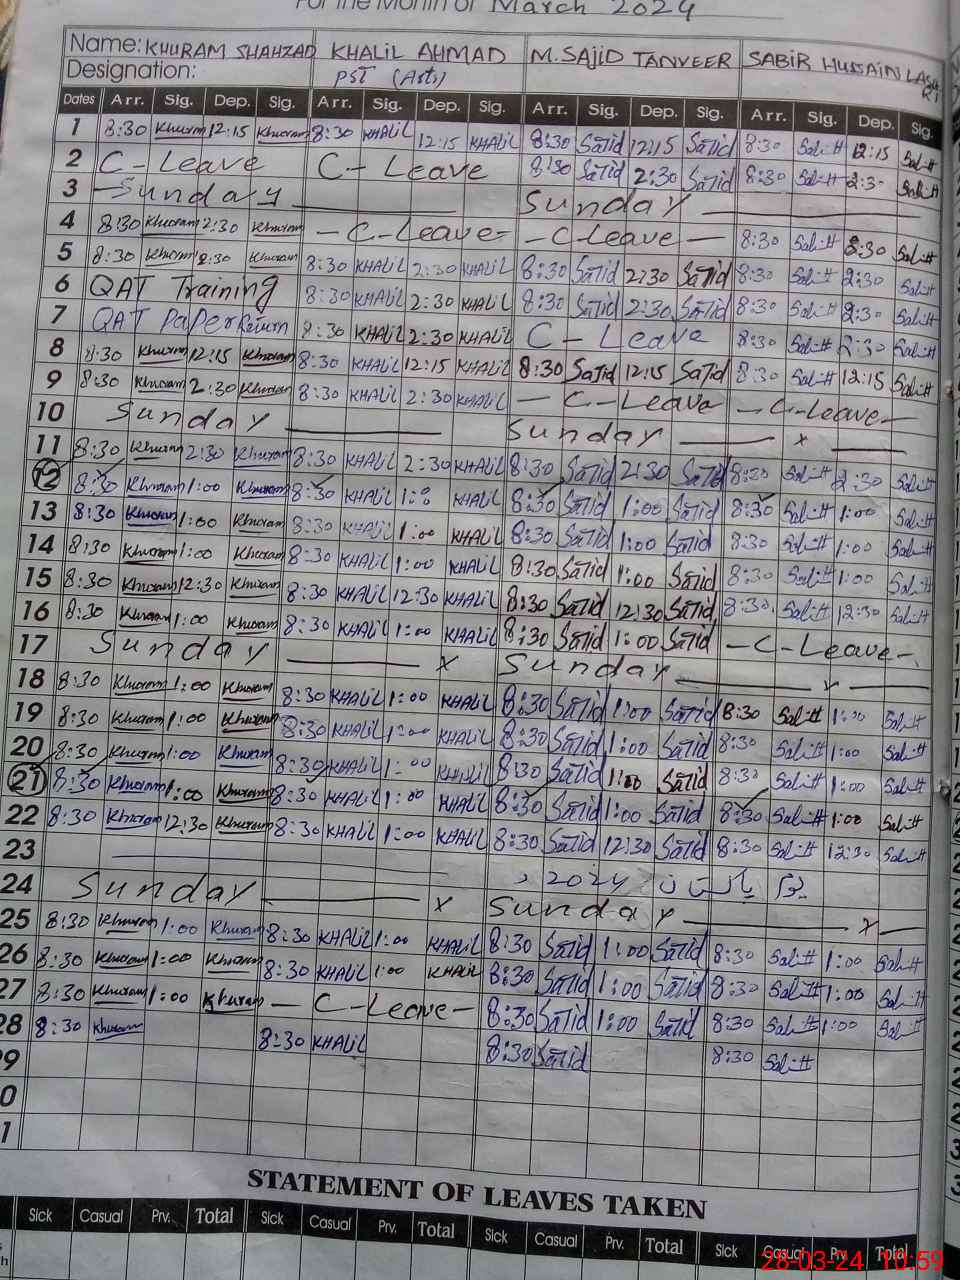 For the Month of March 2024
Name: KHURAM SHAHZAD KHALIL AHMAD M. SAJID TANVEER SABIR HUSSAIN LASHARI
Designation: PST (Arts)
Dates Arr. Sig. Dep. Sig. Arr. Sig. Dep. Sig. Arr. Sig. Dep. Sig. Arr. Sig. Dep. Sig.
1 8:30 Khuram 12:15 Khuram 8:30 KHALIL 12:15 KHALIL 8:30 Sajid 12:15 Sajid 8:30 12:15
2 C-Leave C-Leave 8:30 Sajid 2:30 Sajid 8:30 2:30
3 Sunday Sunday
4 8:30 Khuram 2:30 Khuram -C-Leave- -C-Leave- 8:30 2:30
5 8:30 Khuram 2:30 Khuram 8:30 KHALIL 2:30 KHALIL 8:30 Sajid 2:30 Sajid 8:30 2:30
6 QAT Training 8:30 KHALIL 2:30 KHALIL 8:30 Sajid 2:30 Sajid 8:30 2:30
7 QAT Paper Return 8:30 KHALIL 2:30 KHALIL C-Leave 8:30 2:30
8 8:30 Khuram 12:15 Khuram 8:30 KHALIL 12:15 KHALIL 8:30 Sajid 12:15 Sajid 8:30 12:15
9 8:30 Khuram 2:30 Khuram 8:30 KHALIL 2:30 KHALIL -C-Leave -C-Leave-
10 Sunday Sunday x
11 8:30 Khuram 2:30 Khuram 8:30 KHALIL 2:30 KHALIL 8:30 Sajid 2:30 Sajid 8:30 2:30
12 8:30 Khuram 1:00 Khuram 8:30 KHALIL 1:00 KHALIL 8:30 Sajid 1:00 Sajid 8:30 1:00
13 8:30 Khuram 1:00 Khuram 8:30 KHALIL 1:00 KHALIL 8:30 Sajid 1:00 Sajid 8:30 1:00
14 8:30 Khuram 1:00 Khuram 8:30 KHALIL 1:00 KHALIL 8:30 Sajid 1:00 Sajid 8:30 1:00
15 8:30 Khuram 12:30 Khuram 8:30 KHALIL 12:30 KHALIL 8:30 Sajid 12:30 Sajid 8:30 12:30
16 8:30 Khuram 1:00 Khuram 8:30 KHALIL 1:00 KHALIL 8:30 Sajid 1:00 Sajid -C-Leave-
17 Sunday x Sunday x
18 8:30 Khuram 1:00 Khuram 8:30 KHALIL 1:00 KHALIL 8:30 Sajid 1:00 Sajid 8:30 1:00
19 8:30 Khuram 1:00 Khuram 8:30 KHALIL 1:00 KHALIL 8:30 Sajid 1:00 Sajid 8:30 1:00
20 8:30 Khuram 1:00 Khuram 8:30 KHALIL 1:00 KHALIL 8:30 Sajid 1:00 Sajid 8:30 1:00
21 8:30 Khuram 1:00 Khuram 8:30 KHALIL 1:00 KHALIL 8:30 Sajid 1:00 Sajid 8:30 1:00
22 8:30 Khuram 12:30 Khuram 8:30 KHALIL 1:00 KHALIL 8:30 Sajid 12:30 Sajid 8:30 12:30
23 یوم پاکستان 2024
24 Sunday x Sunday x x
25 8:30 Khuram 1:00 Khuram 8:30 KHALIL 1:00 KHALIL 8:30 Sajid 1:00 Sajid 8:30 1:00
26 8:30 Khuram 1:00 Khuram 8:30 KHALIL 1:00 KHALIL 8:30 Sajid 1:00 Sajid 8:30 1:00
27 8:30 Khuram 1:00 Khuram -C-Leave- 8:30 Sajid 1:00 Sajid 8:30 1:00
28 8:30 Khuram 8:30 KHALIL 8:30 Sajid 8:30
9
0
1
STATEMENT OF LEAVES TAKEN
Sick Casual Prv. Total Sick Casual Prv. Total Sick Casual Prv. Total Sick Casual Prv. Total
28-03-24 10:59